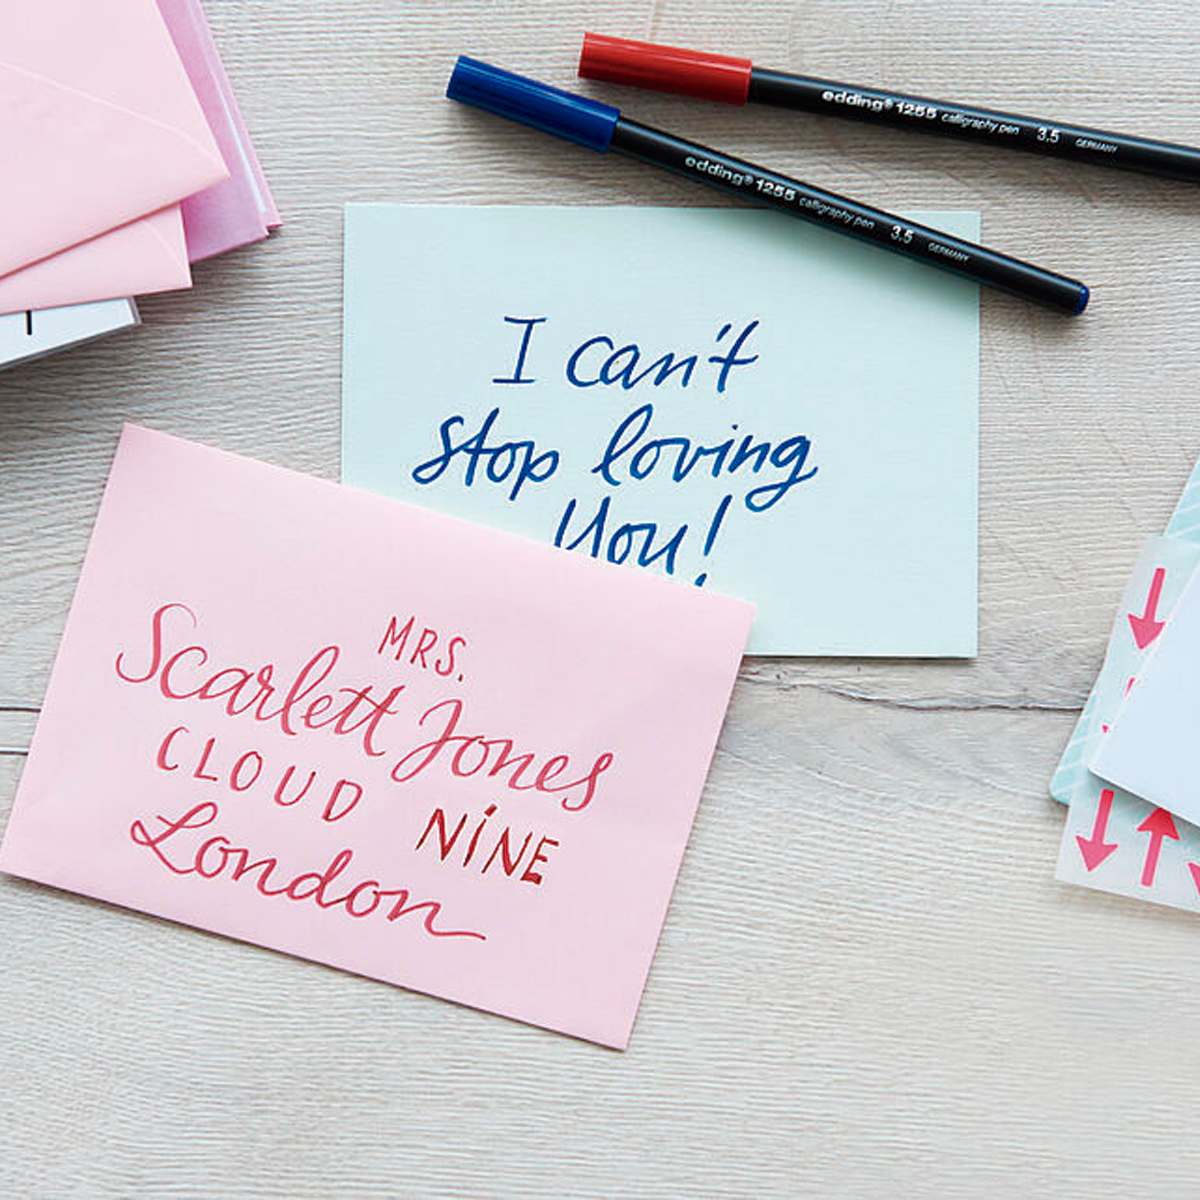 edding® 1255 calligraphy pen 3.5 GERMANY
edding® 1255 calligraphy pen 3.5 GERMANY
I can't
stop loving
You!
MRS.
Scarlett Jones
CLOUD NINE
London